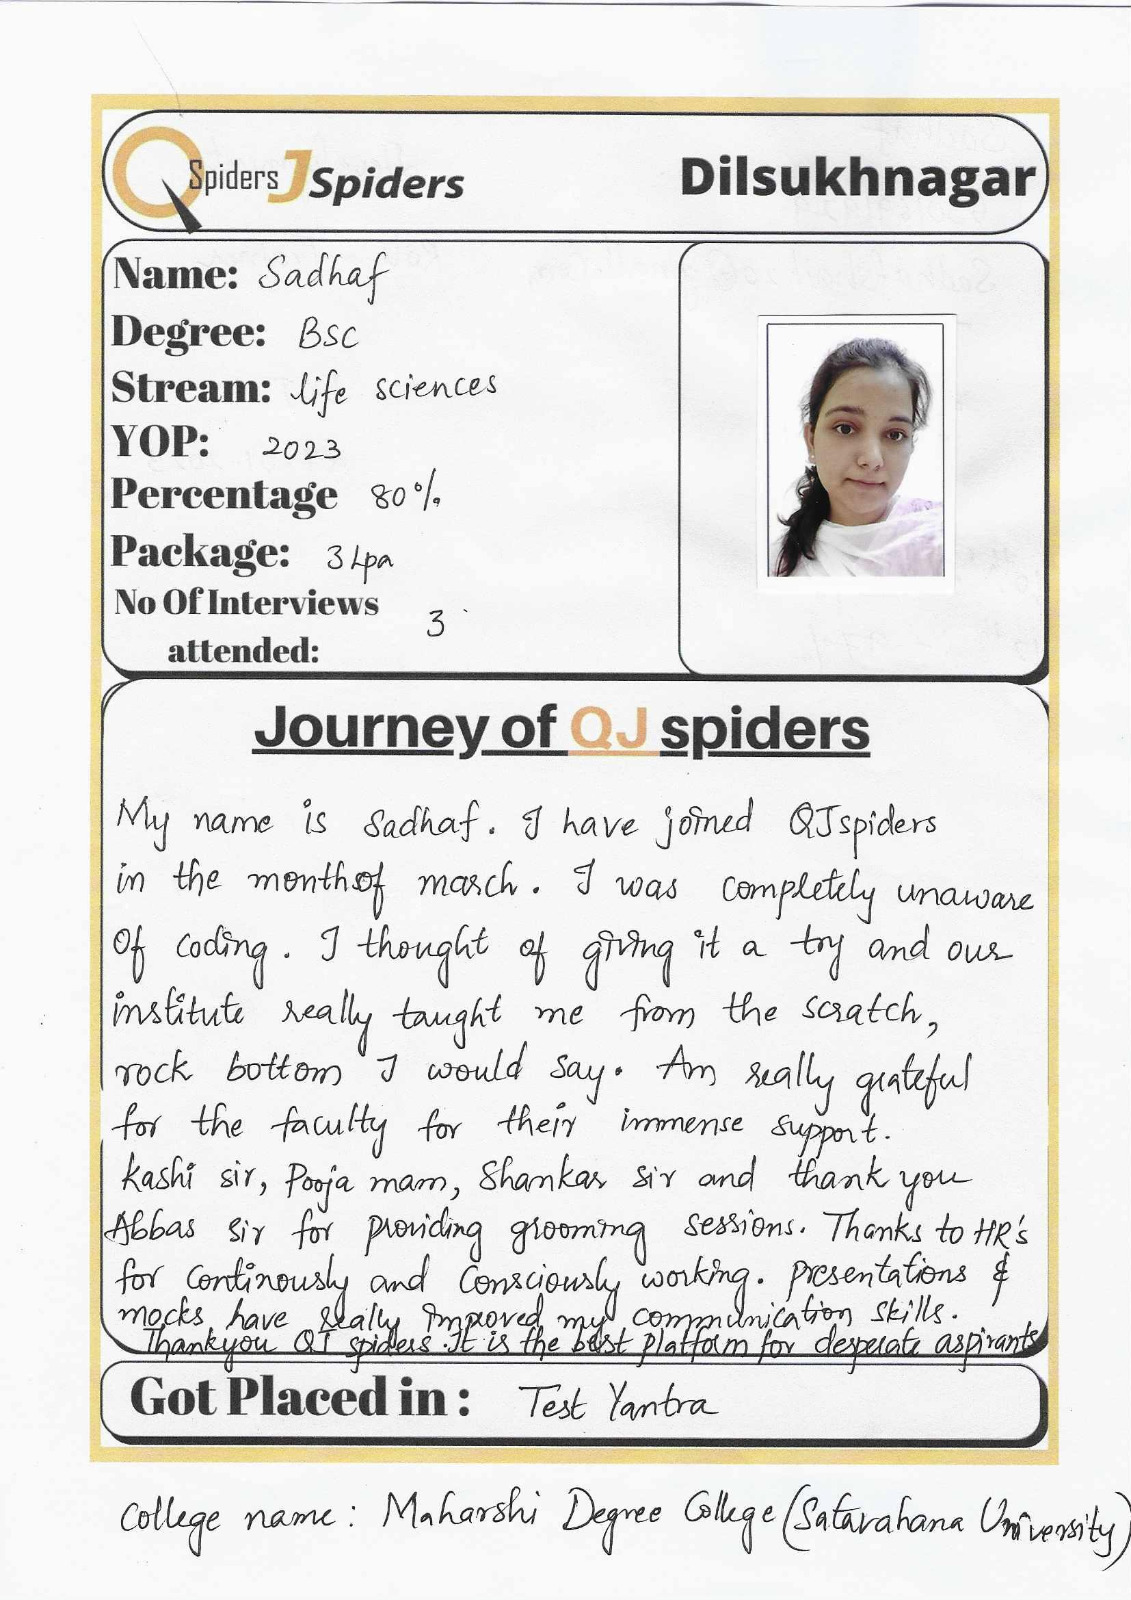 QSpiders JSpiders Dilsukhnagar
Name: Sadhaf
Degree: BSC
Stream: life sciences
YOP: 2023
Percentage 80%
Package: 3 Lpa
No Of Interviews
attended: 3
Journey of QJ spiders
My name is Sadhaf. I have joined QJspiders
in the month of march. I was completely unaware
Of coding. I thought of giving it a try and our
institute really taught me from the scratch,
rock bottom I would say. Am really grateful
for the faculty for their immense support.
Kashi sir, Pooja mam, Shankar sir and thank you
Abbas sir for providing grooming sessions. Thanks to HR's
for continously and consciously working. presentations &
mocks have really improved my communication skills.
Thankyou QJ spiders. It is the best platform for desperate aspirants
Got Placed in : Test Yantra
College name : Maharshi Degree College (Satavahana University)